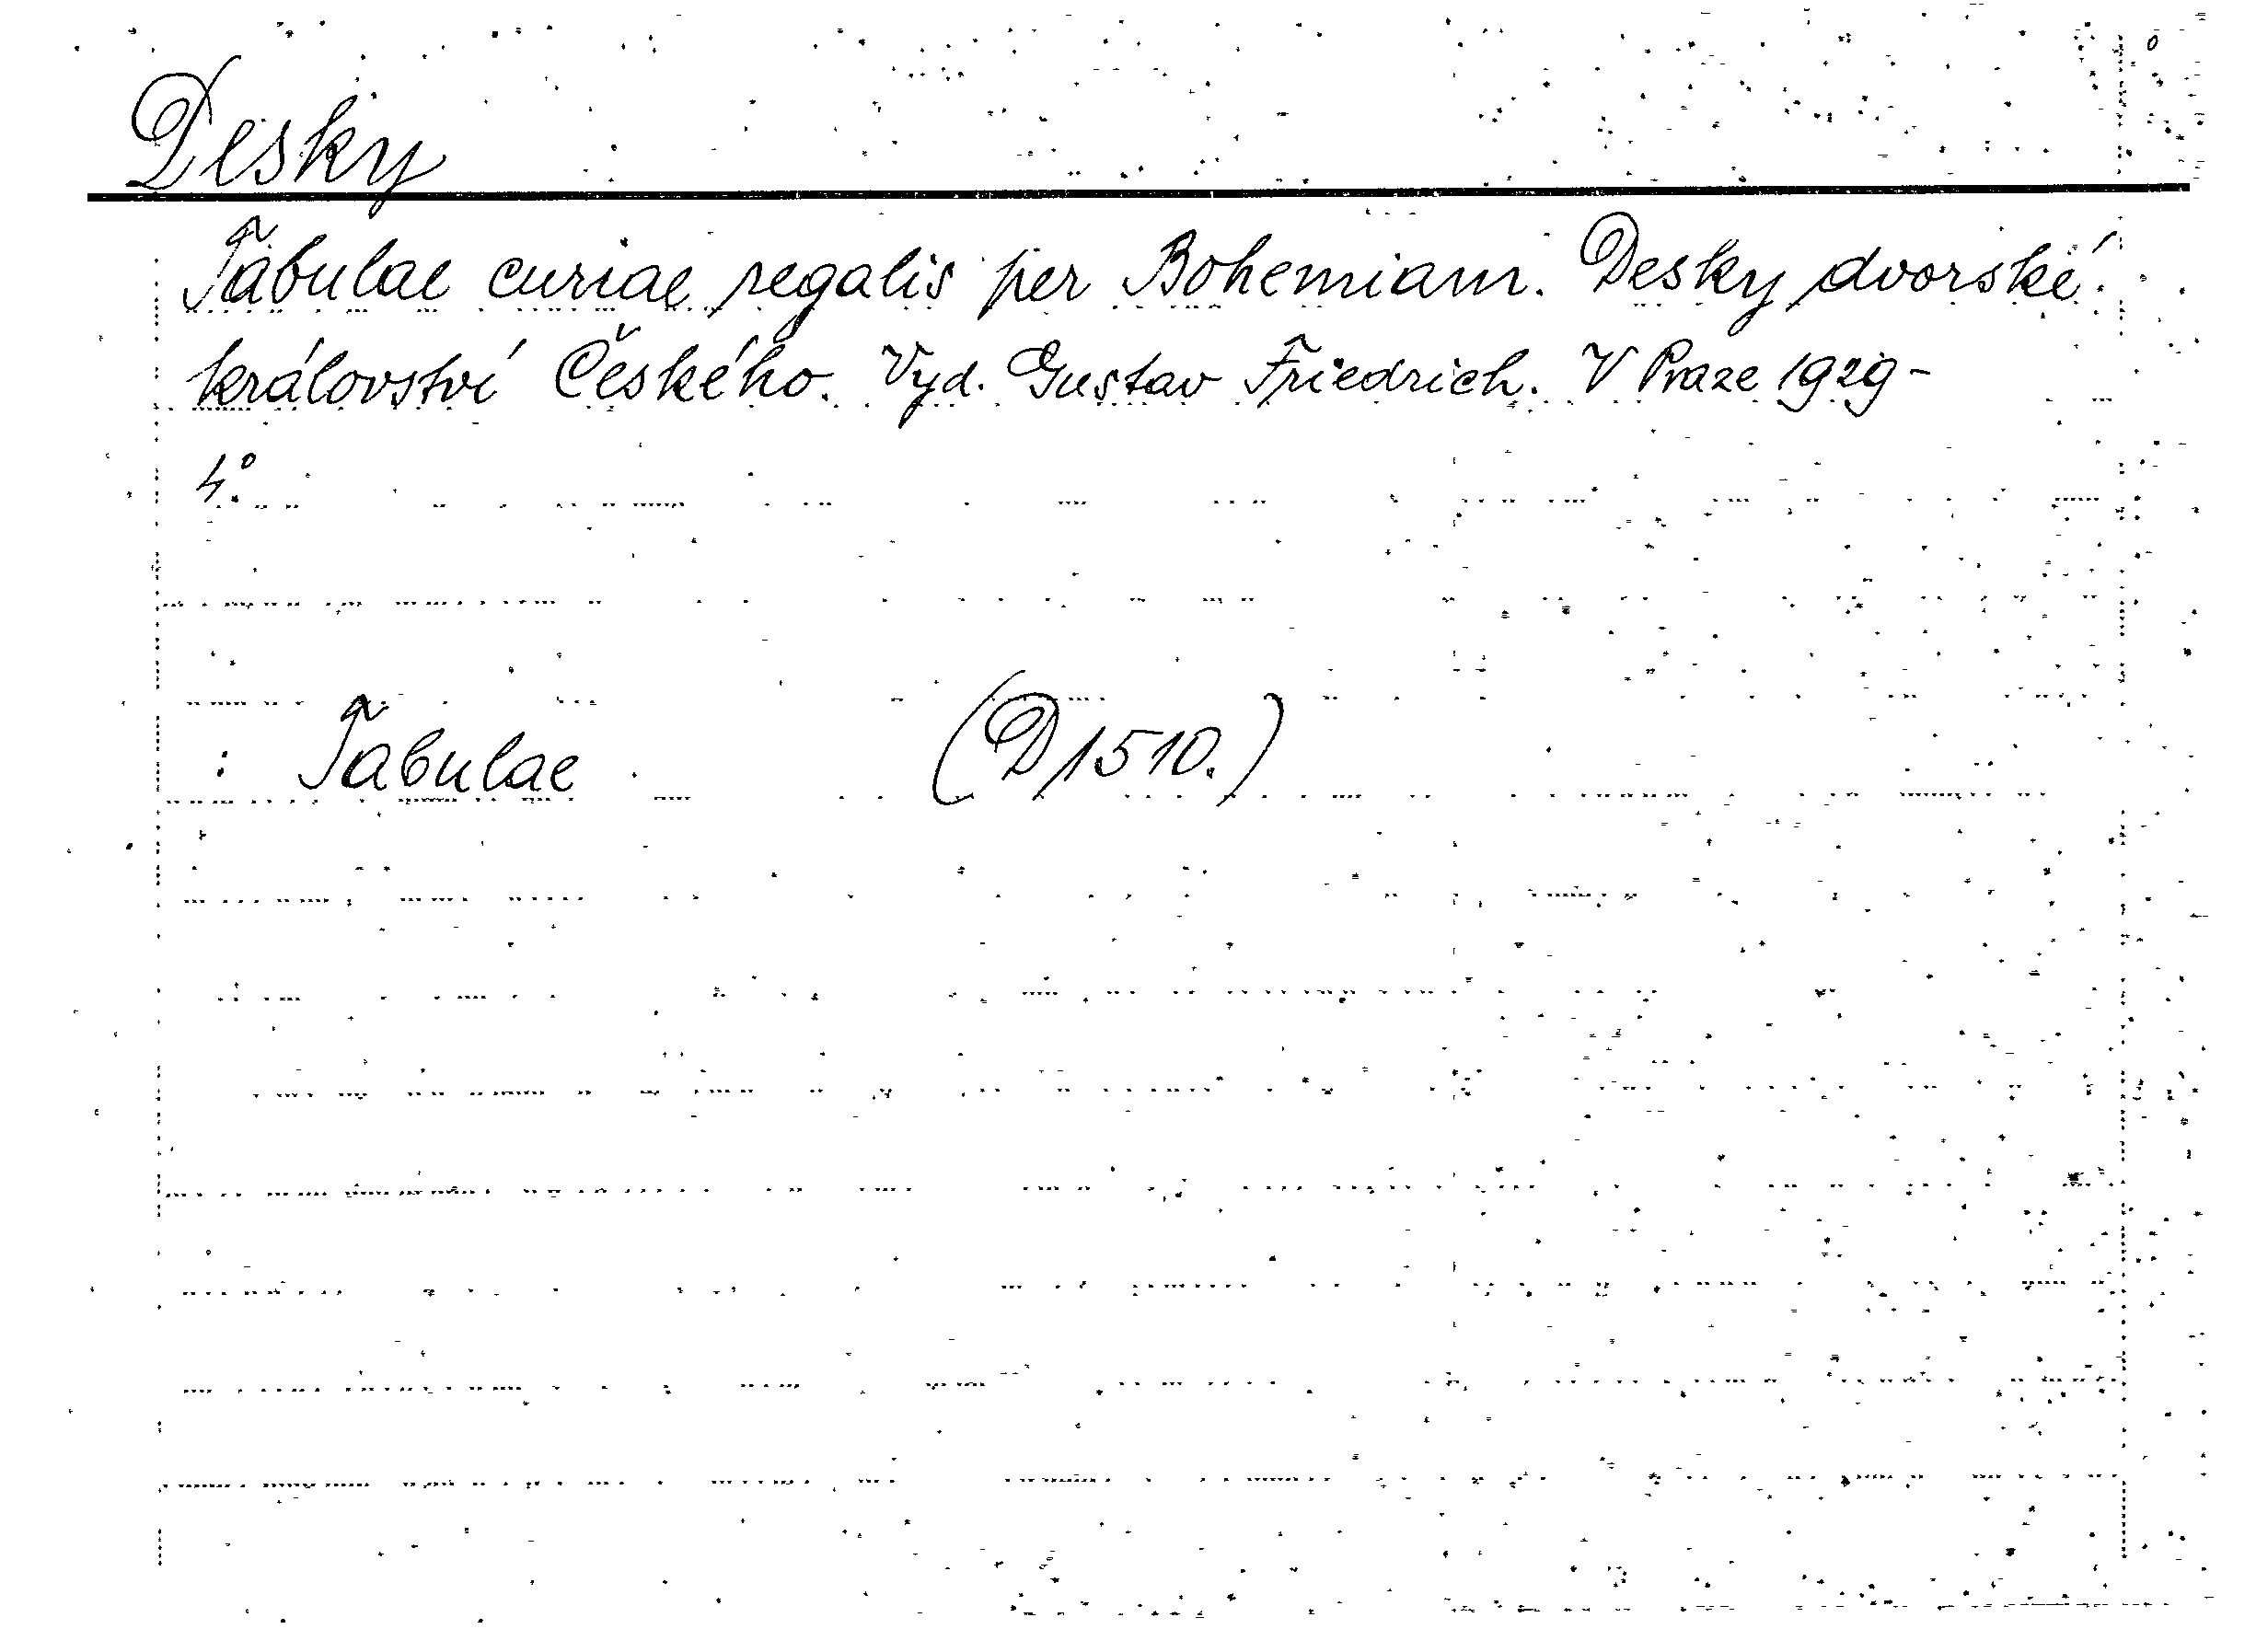 Desky
Tabulae curiae regalis per Bohemiam. Desky dvorské
království Českého. Vyd. Gustav Friedrich. V Praze 1929-
4°.
: Tabulae (D 1510.)